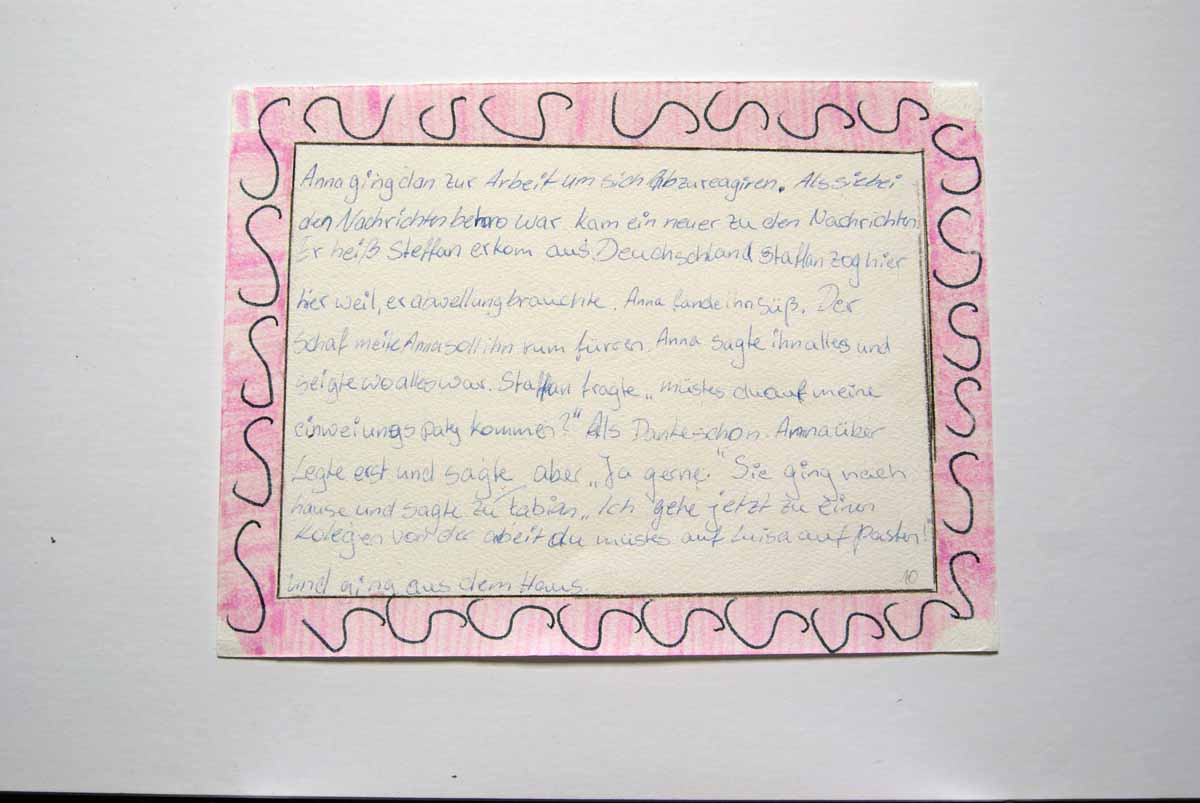 Anna ging dan zur Arbeit um sich Abzureagiren. Als sie bei
den Nachrichten büro war kam ein neuer zu den Nachrichten
Er heiß Steffan er kom aus Deuchschland Staffan zog hier
hier weil, er abwellung brauchte. Anna fande ihn süß. Der
schaf meite Anna soll ihn rum füren. Anna sagte ihn alles und
zeigte wo alles war. Staffan fragte „müstes du auf meine
einweiungs paty kommen?" Als Danke-schon. Anna über
Legte erst und sagte aber „Ja gerne." Sie ging nach
hause und sagte zu fabian „Ich gehe jetzt zu einen
Kolegen von der arbeit du müstes auf Luisa auf pasten!"
und ging aus dem Haus.
10